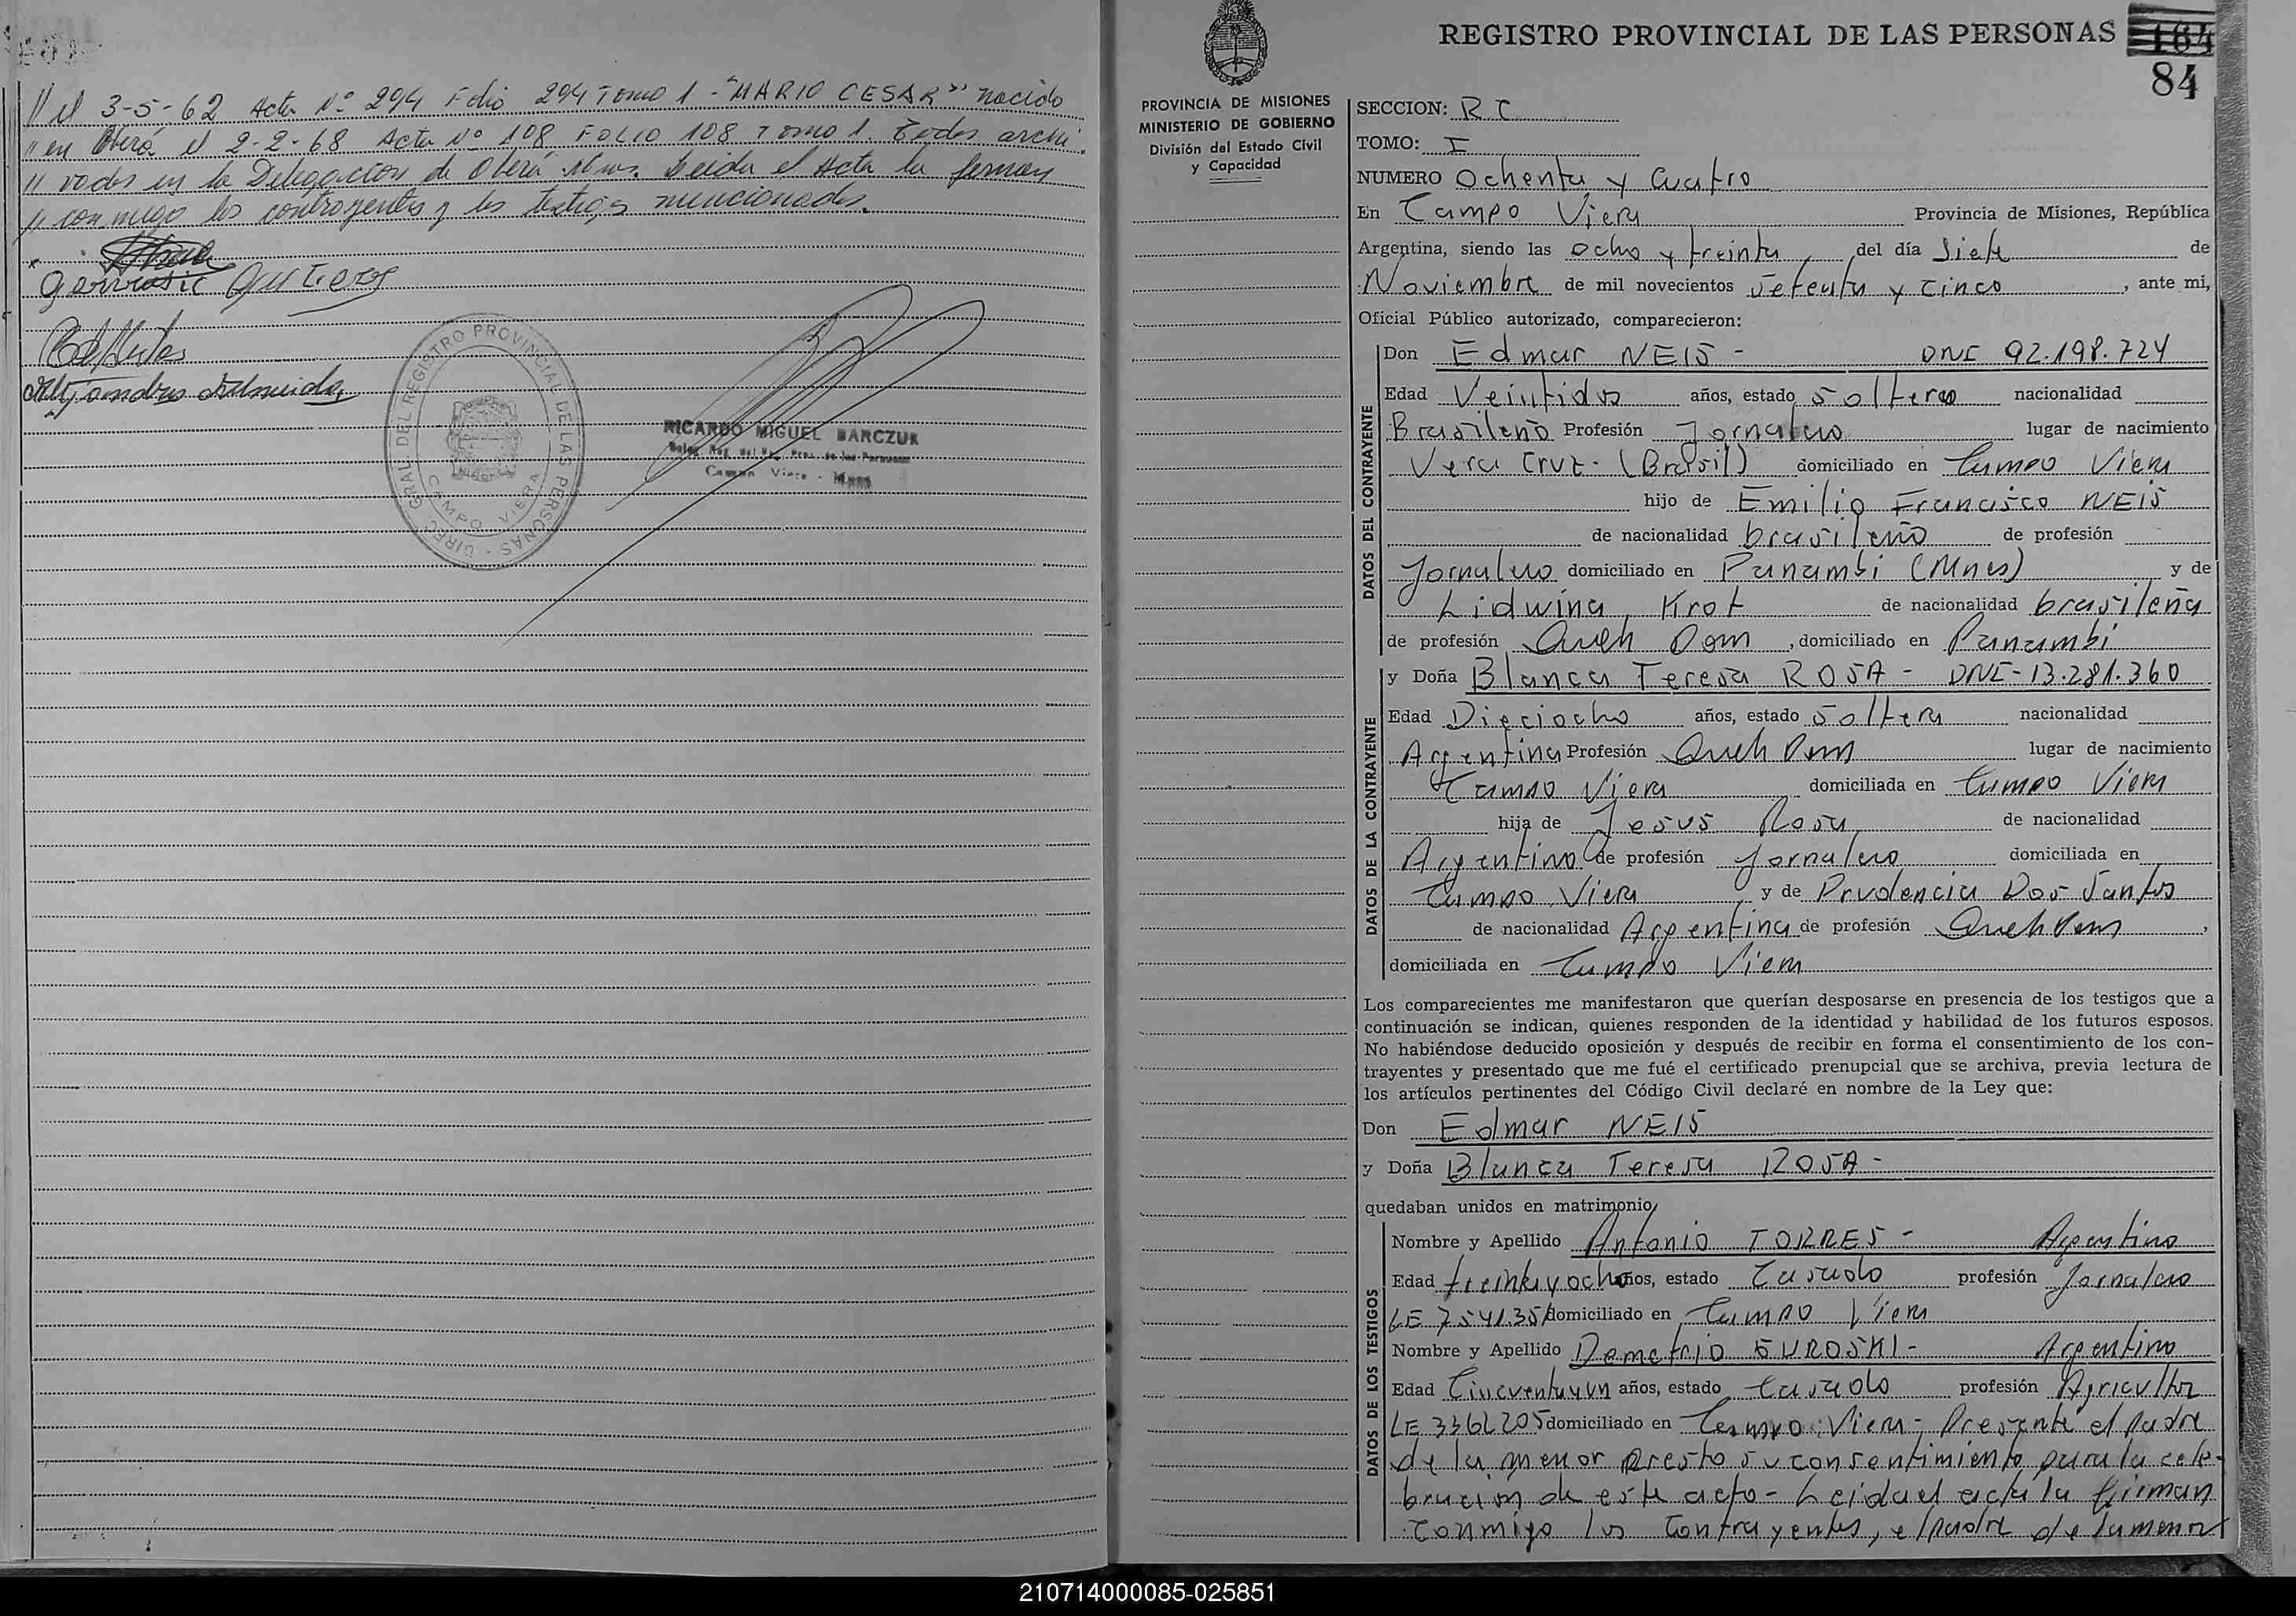 // el 3-5-62 Acta Nº 294 Folio 294 Tomo 1 - "MARIO CESAR" nacido
// en Oberá el 2-2-68 Acta Nº 108 FOLIO 108 Tomo 1. Todos archi
// vados en la Delegación de Oberá Mnes. Leida el Acta la firman
// conmigo los contrayentes y los testigos mencionados.
DIREC. GRAL. DEL REGISTRO PROVINCIAL DE LAS PERSONAS
CAMPO VIERA
RICARDO MIGUEL BARCZUK
Deleg. Reg. del Reg. Prov. de las Personas
Campo Viera - Mnes
REGISTRO PROVINCIAL DE LAS PERSONAS
164
84
PROVINCIA DE MISIONES
MINISTERIO DE GOBIERNO
División del Estado Civil
y Capacidad
SECCION: RC
TOMO: I
NUMERO Ochenta y Cuatro
En Campo Viera Provincia de Misiones, República
Argentina, siendo las ocho y treinta, del día Siete de
Noviembre de mil novecientos setenta y cinco, ante mi,
Oficial Público autorizado, comparecieron:
DATOS DEL CONTRAYENTE
Don Edmar NEIS - DNI 92.198.724
Edad Veintidos años, estado soltero nacionalidad
Brasileño Profesión Jornalero lugar de nacimiento
Vera Cruz - (Brasil) domiciliado en Campo Viera
hijo de Emilio Francisco NEIS
de nacionalidad brasileño de profesión
Jornalero domiciliado en Panambi (Mnes) y de
Lidwina Krot de nacionalidad brasileña
de profesión Queh Dom, domiciliado en Panambi
DATOS DE LA CONTRAYENTE
y Doña Blanca Teresa ROSA - DNI - 13.281.360
Edad Dieciocho años, estado soltera nacionalidad
Argentina Profesión Queh Dom lugar de nacimiento
Campo Viera domiciliada en Campo Viera
hija de Jesus Rosa de nacionalidad
Argentino de profesión Jornalero domiciliada en
Campo Viera y de Prudencia Dos Santos
de nacionalidad Argentina de profesión Queh Dom,
domiciliada en Campo Viera
Los comparecientes me manifestaron que querían desposarse en presencia de los testigos que a
continuación se indican, quienes responden de la identidad y habilidad de los futuros esposos.
No habiéndose deducido oposición y después de recibir en forma el consentimiento de los con-
trayentes y presentado que me fué el certificado prenupcial que se archiva, previa lectura de
los artículos pertinentes del Código Civil declaré en nombre de la Ley que:
Don Edmar NEIS
y Doña Blanca Teresa ROSA -
quedaban unidos en matrimonio
DATOS DE LOS TESTIGOS
Nombre y Apellido Antonio TORRES - Argentino
Edad treinta y ocho años, estado Casado profesión Jornalero
LE 7541.351 domiciliado en Campo Viera
Nombre y Apellido Demetrio SUROSKI - Argentino
Edad Cincuenta y un años, estado Casado profesión Agricultor
LE 3362205 domiciliado en Campo Viera - Presente el padre
de la menor presto su consentimiento para la cele-
bracion de este acto - Leida el acta la firman
conmigo los contrayentes, el padre de la menor
210714000085-025851